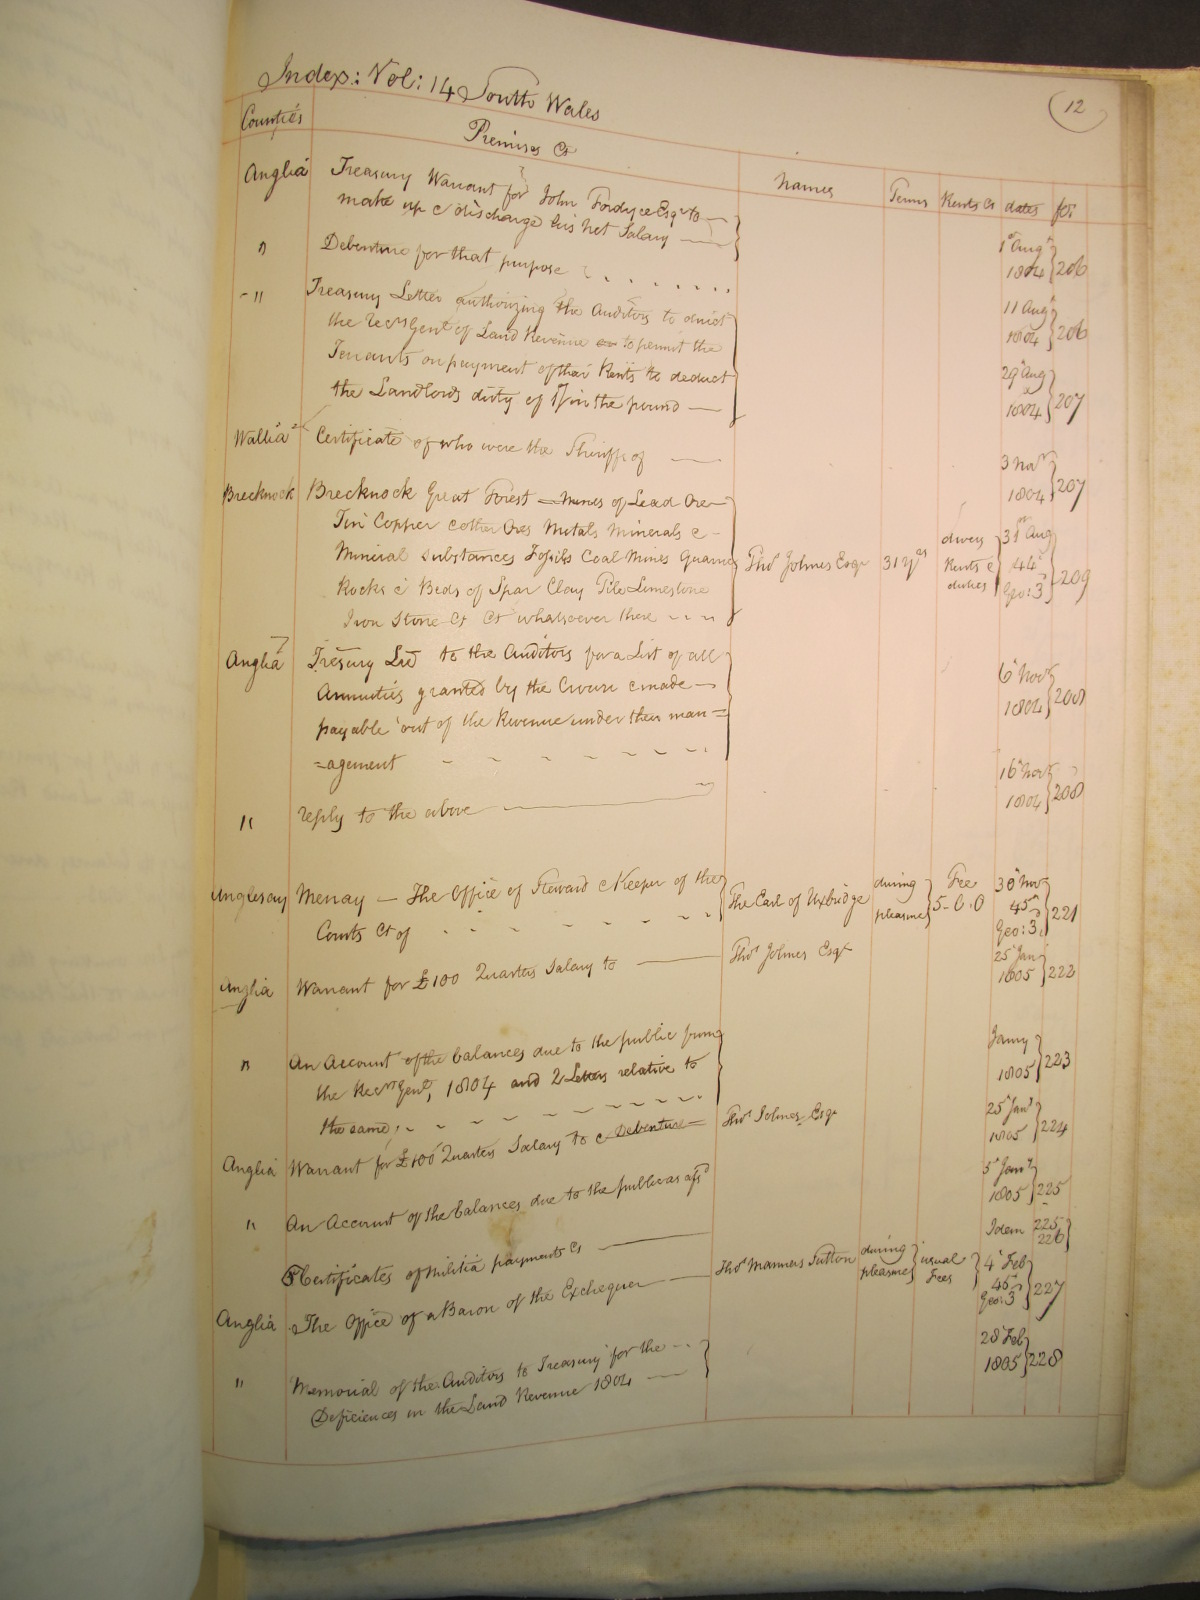 Index: Vol: 14 South Wales
12
Counties Premises &c Names Terms Rents &c dates fo:
Anglia Treasury Warrant for John Fordyce Esqr to
make up & discharge his net Salary 1st Augt 1804 206
" Debenture for that purpose 11 Augt 1804 206
" Treasury Letter authorizing the Auditors to direct
the Recrs Genl of Land Revenue to permit the
Tenants on payment of their Rents to deduct
the Landlords duty of 1/ in the pound 29 Aug 1804 207
Wallia Certificate of who were the Sheriffs of 3 Novr 1804 207
Brecknock Brecknock Great Forest = Mines of Lead Ore
Tin Copper & other Ores Metals Minerals &
Mineral substances Fossils Coal Mines Quarries
Rocks & Beds of Spar Clay Pile Limestone
Iron Stone &c &c whatsoever there Thos Johnes Esqr 31 yrs divers Rents & duties 31st Aug 44th Geo: 3 209
Anglia Tresury Lre to the Auditors for a List of all
Annuities granted by the Crown & made
payable out of the Revenue under their man=
=agement 6 Novr 1804 208
" reply to the above 16 Novr 1804 208
Anglesay Menay — The Office of Steward & Keeper of the
Courts &c of The Earl of Uxbridge during pleasure Fee 5-0-0 30 Novr 45th Geo: 3 221
Anglia Warrant for £100 Quarters Salary to Thos Johnes Esqr 25 Jany 1805 222
" An Account of the balances due to the public from
the Recrs Genl, 1804 and 2 Letters relative to
the same Jany 1805 223
Anglia Warrant for £100 Quarters Salary to & Debenture = Thos Johnes Esqr 25 Jany 1805 224
" An Account of the balances due to the public as afsd 5 Jany 1805 225
Certificates of Militia payments &c Idem 225 226
Anglia The Office of a Baron of the Exchequer Thos Manners Sutton during pleasure usual Fees 4 Feb 45th Geo: 3 227
" Memorial of the Auditors to Treasury for the
Deficiences in the Land Revenue 1804 28 Feb 1805 228